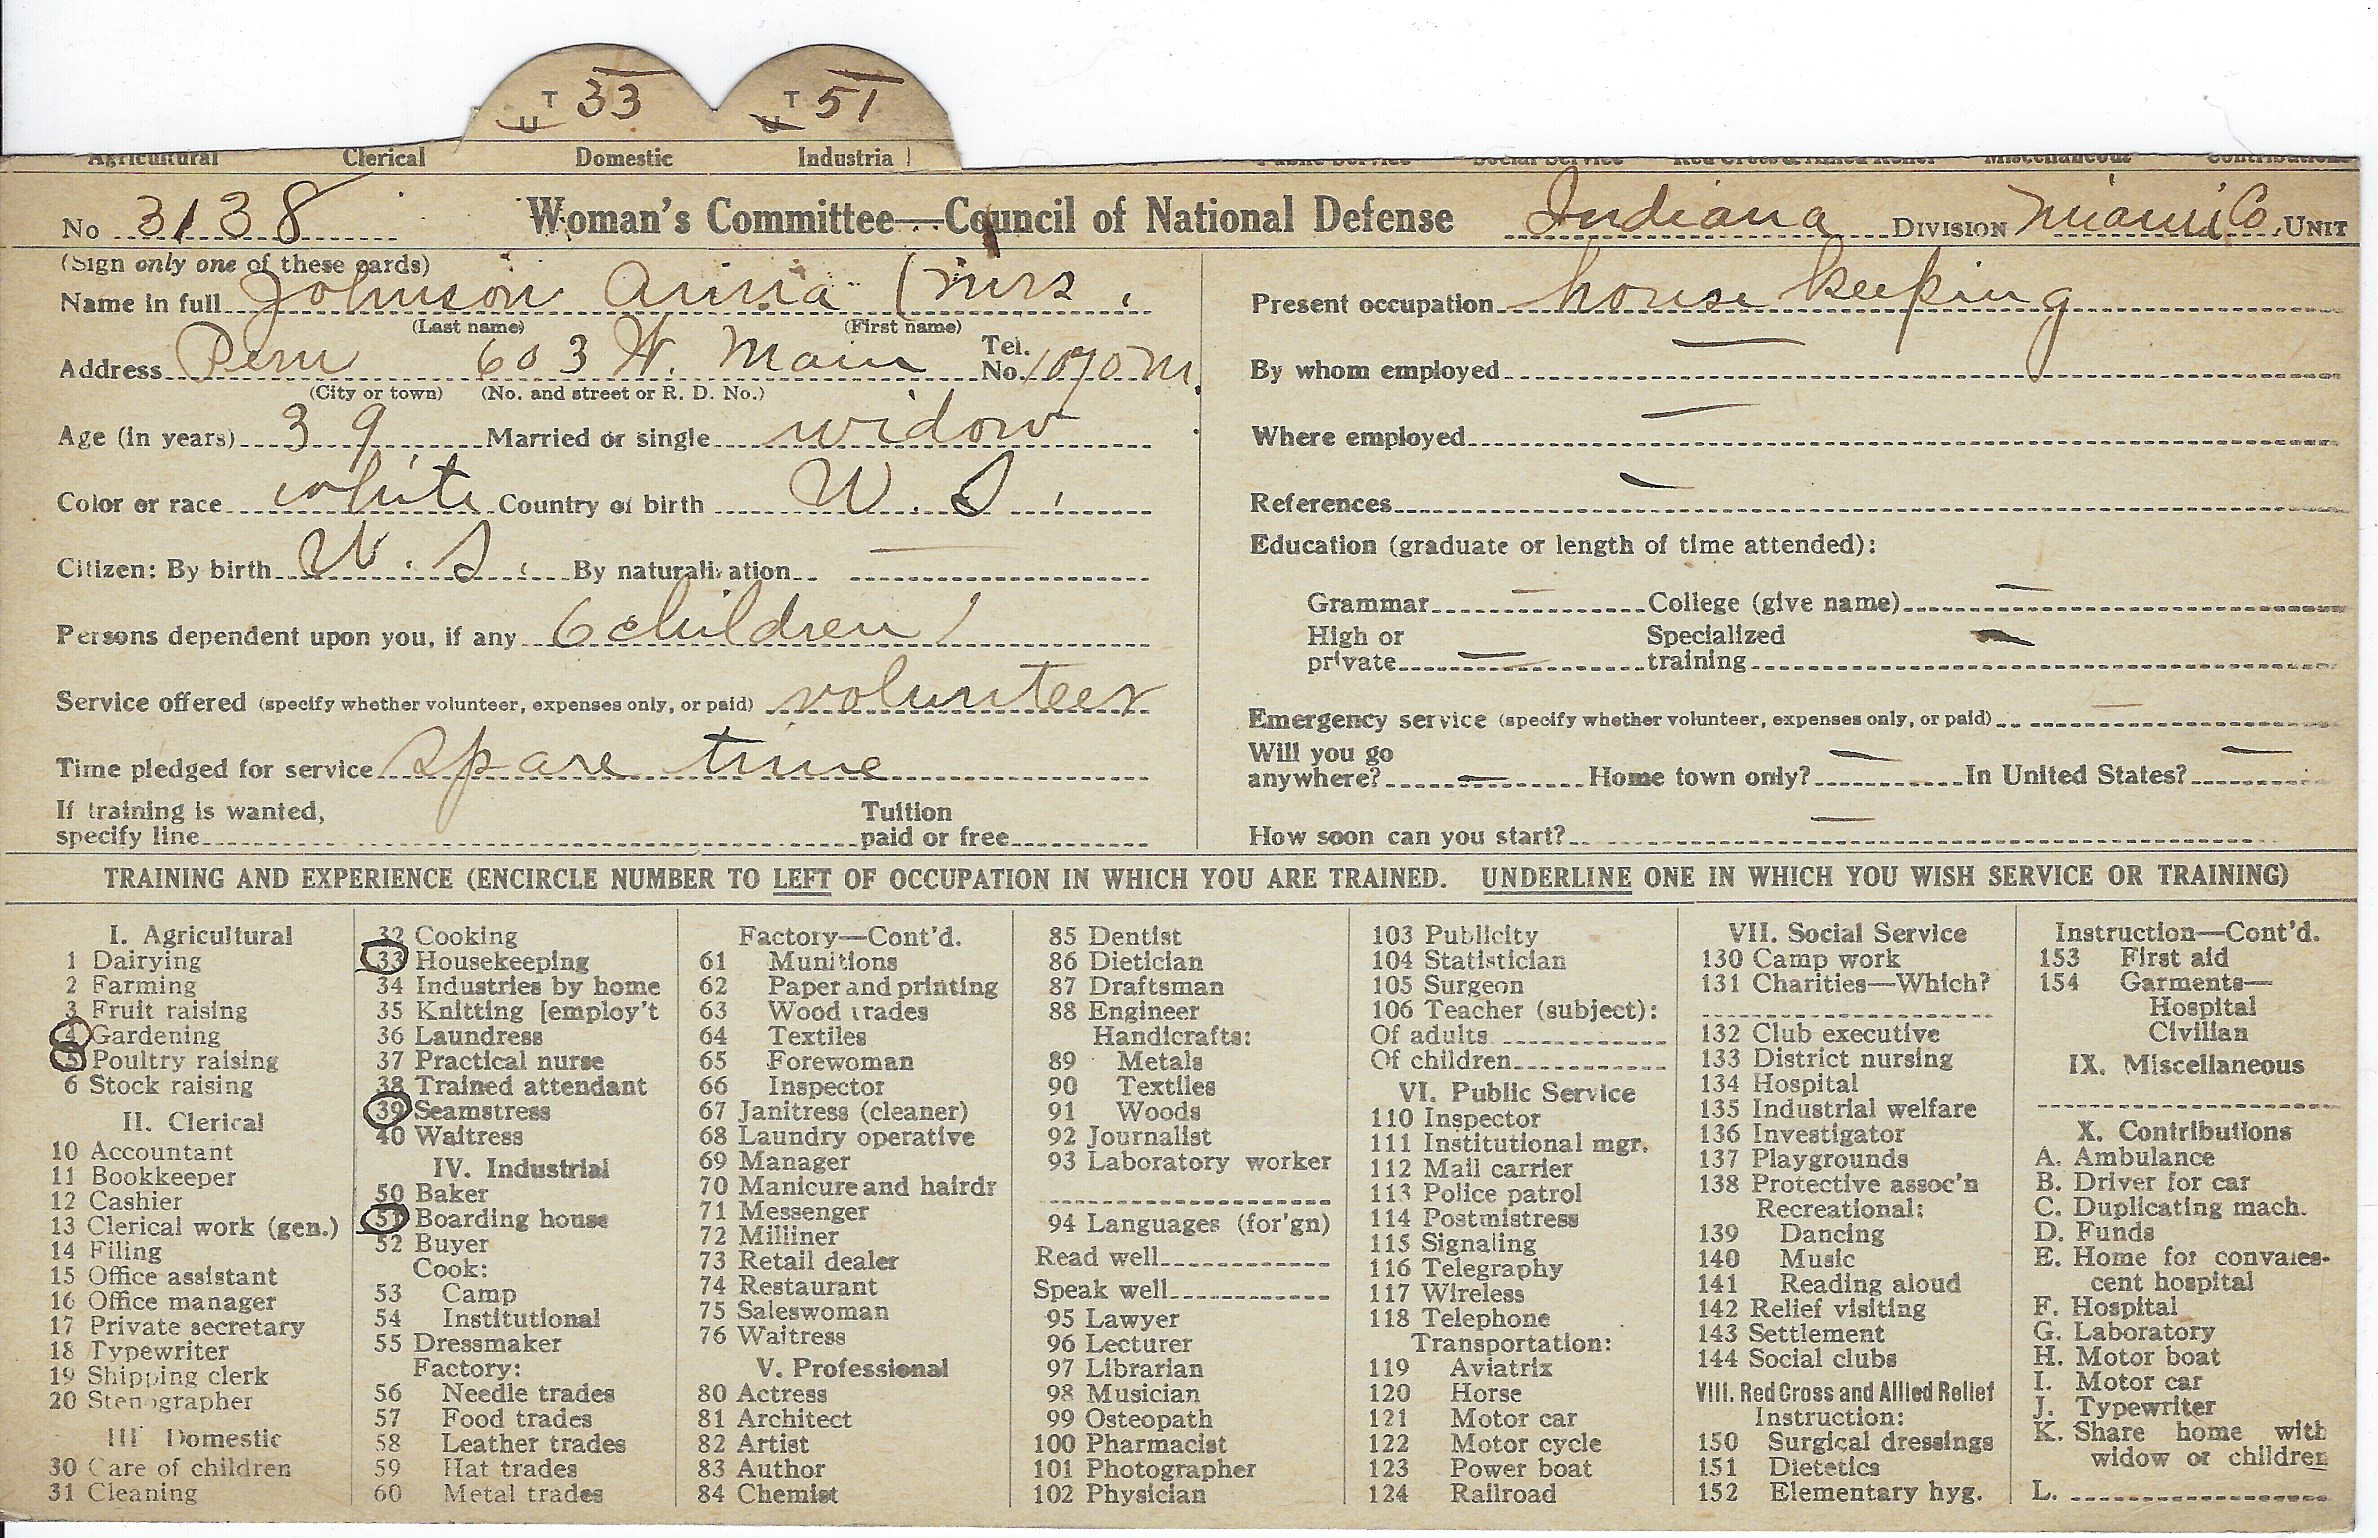 T 33 T 51
U U
Agricultural Clerical Domestic Industrial Public Service Social Service Red Cross & Allied Relief Miscellaneous Contributions
No 3138 Woman's Committee—Council of National Defense Indiana DIVISION Miami Co. UNIT
(Sign only one of these cards)
Name in full Johnson Anna (Mrs.
(Last name) (First name)
Address Peru 603 W. Main Tel. No. 1070 M.
(City or town) (No. and street or R. D. No.)
Age (in years) 39 Married or single widow
Color or race white Country of birth U. S.
Citizen: By birth U. S. By naturalization —
Persons dependent upon you, if any 6 children
Service offered (specify whether volunteer, expenses only, or paid) volunteer
Time pledged for service spare time
If training is wanted, Tuition
specify line paid or free
Present occupation house keeping
By whom employed —
Where employed —
References —
Education (graduate or length of time attended):
Grammar — College (give name) —
High or Specialized
private — training —
Emergency service (specify whether volunteer, expenses only, or paid) —
Will you go
anywhere? — Home town only? — In United States? —
How soon can you start? —
TRAINING AND EXPERIENCE (ENCIRCLE NUMBER TO LEFT OF OCCUPATION IN WHICH YOU ARE TRAINED. UNDERLINE ONE IN WHICH YOU WISH SERVICE OR TRAINING)
I. Agricultural
1 Dairying
2 Farming
3 Fruit raising
4 Gardening
5 Poultry raising
6 Stock raising
II. Clerical
10 Accountant
11 Bookkeeper
12 Cashier
13 Clerical work (gen.)
14 Filing
15 Office assistant
16 Office manager
17 Private secretary
18 Typewriter
19 Shipping clerk
20 Stenographer
III Domestic
30 Care of children
31 Cleaning
32 Cooking
33 Housekeeping
34 Industries by home
35 Knitting [employ't
36 Laundress
37 Practical nurse
38 Trained attendant
39 Seamstress
40 Waitress
IV. Industrial
50 Baker
51 Boarding house
52 Buyer
Cook:
53 Camp
54 Institutional
55 Dressmaker
Factory:
56 Needle trades
57 Food trades
58 Leather trades
59 Hat trades
60 Metal trades
Factory—Cont'd.
61 Munitions
62 Paper and printing
63 Wood trades
64 Textiles
65 Forewoman
66 Inspector
67 Janitress (cleaner)
68 Laundry operative
69 Manager
70 Manicure and hairdr
71 Messenger
72 Milliner
73 Retail dealer
74 Restaurant
75 Saleswoman
76 Waitress
V. Professional
80 Actress
81 Architect
82 Artist
83 Author
84 Chemist
85 Dentist
86 Dietician
87 Draftsman
88 Engineer
Handicrafts:
89 Metals
90 Textiles
91 Woods
92 Journalist
93 Laboratory worker
94 Languages (for'gn)
Read well
Speak well
95 Lawyer
96 Lecturer
97 Librarian
98 Musician
99 Osteopath
100 Pharmacist
101 Photographer
102 Physician
103 Publicity
104 Statistician
105 Surgeon
106 Teacher (subject):
Of adults
Of children
VI. Public Service
110 Inspector
111 Institutional mgr.
112 Mail carrier
113 Police patrol
114 Postmistress
115 Signaling
116 Telegraphy
117 Wireless
118 Telephone
Transportation:
119 Aviatrix
120 Horse
121 Motor car
122 Motor cycle
123 Power boat
124 Railroad
VII. Social Service
130 Camp work
131 Charities—Which?
132 Club executive
133 District nursing
134 Hospital
135 Industrial welfare
136 Investigator
137 Playgrounds
138 Protective assoc'n
Recreational:
139 Dancing
140 Music
141 Reading aloud
142 Relief visiting
143 Settlement
144 Social clubs
VIII. Red Cross and Allied Relief
Instruction:
150 Surgical dressings
151 Dietetics
152 Elementary hyg.
Instruction—Cont'd.
153 First aid
154 Garments—
Hospital
Civilian
IX. Miscellaneous
X. Contributions
A. Ambulance
B. Driver for car
C. Duplicating mach.
D. Funds
E. Home for convales-
cent hospital
F. Hospital
G. Laboratory
H. Motor boat
I. Motor car
J. Typewriter
K. Share home with
widow or children
L.